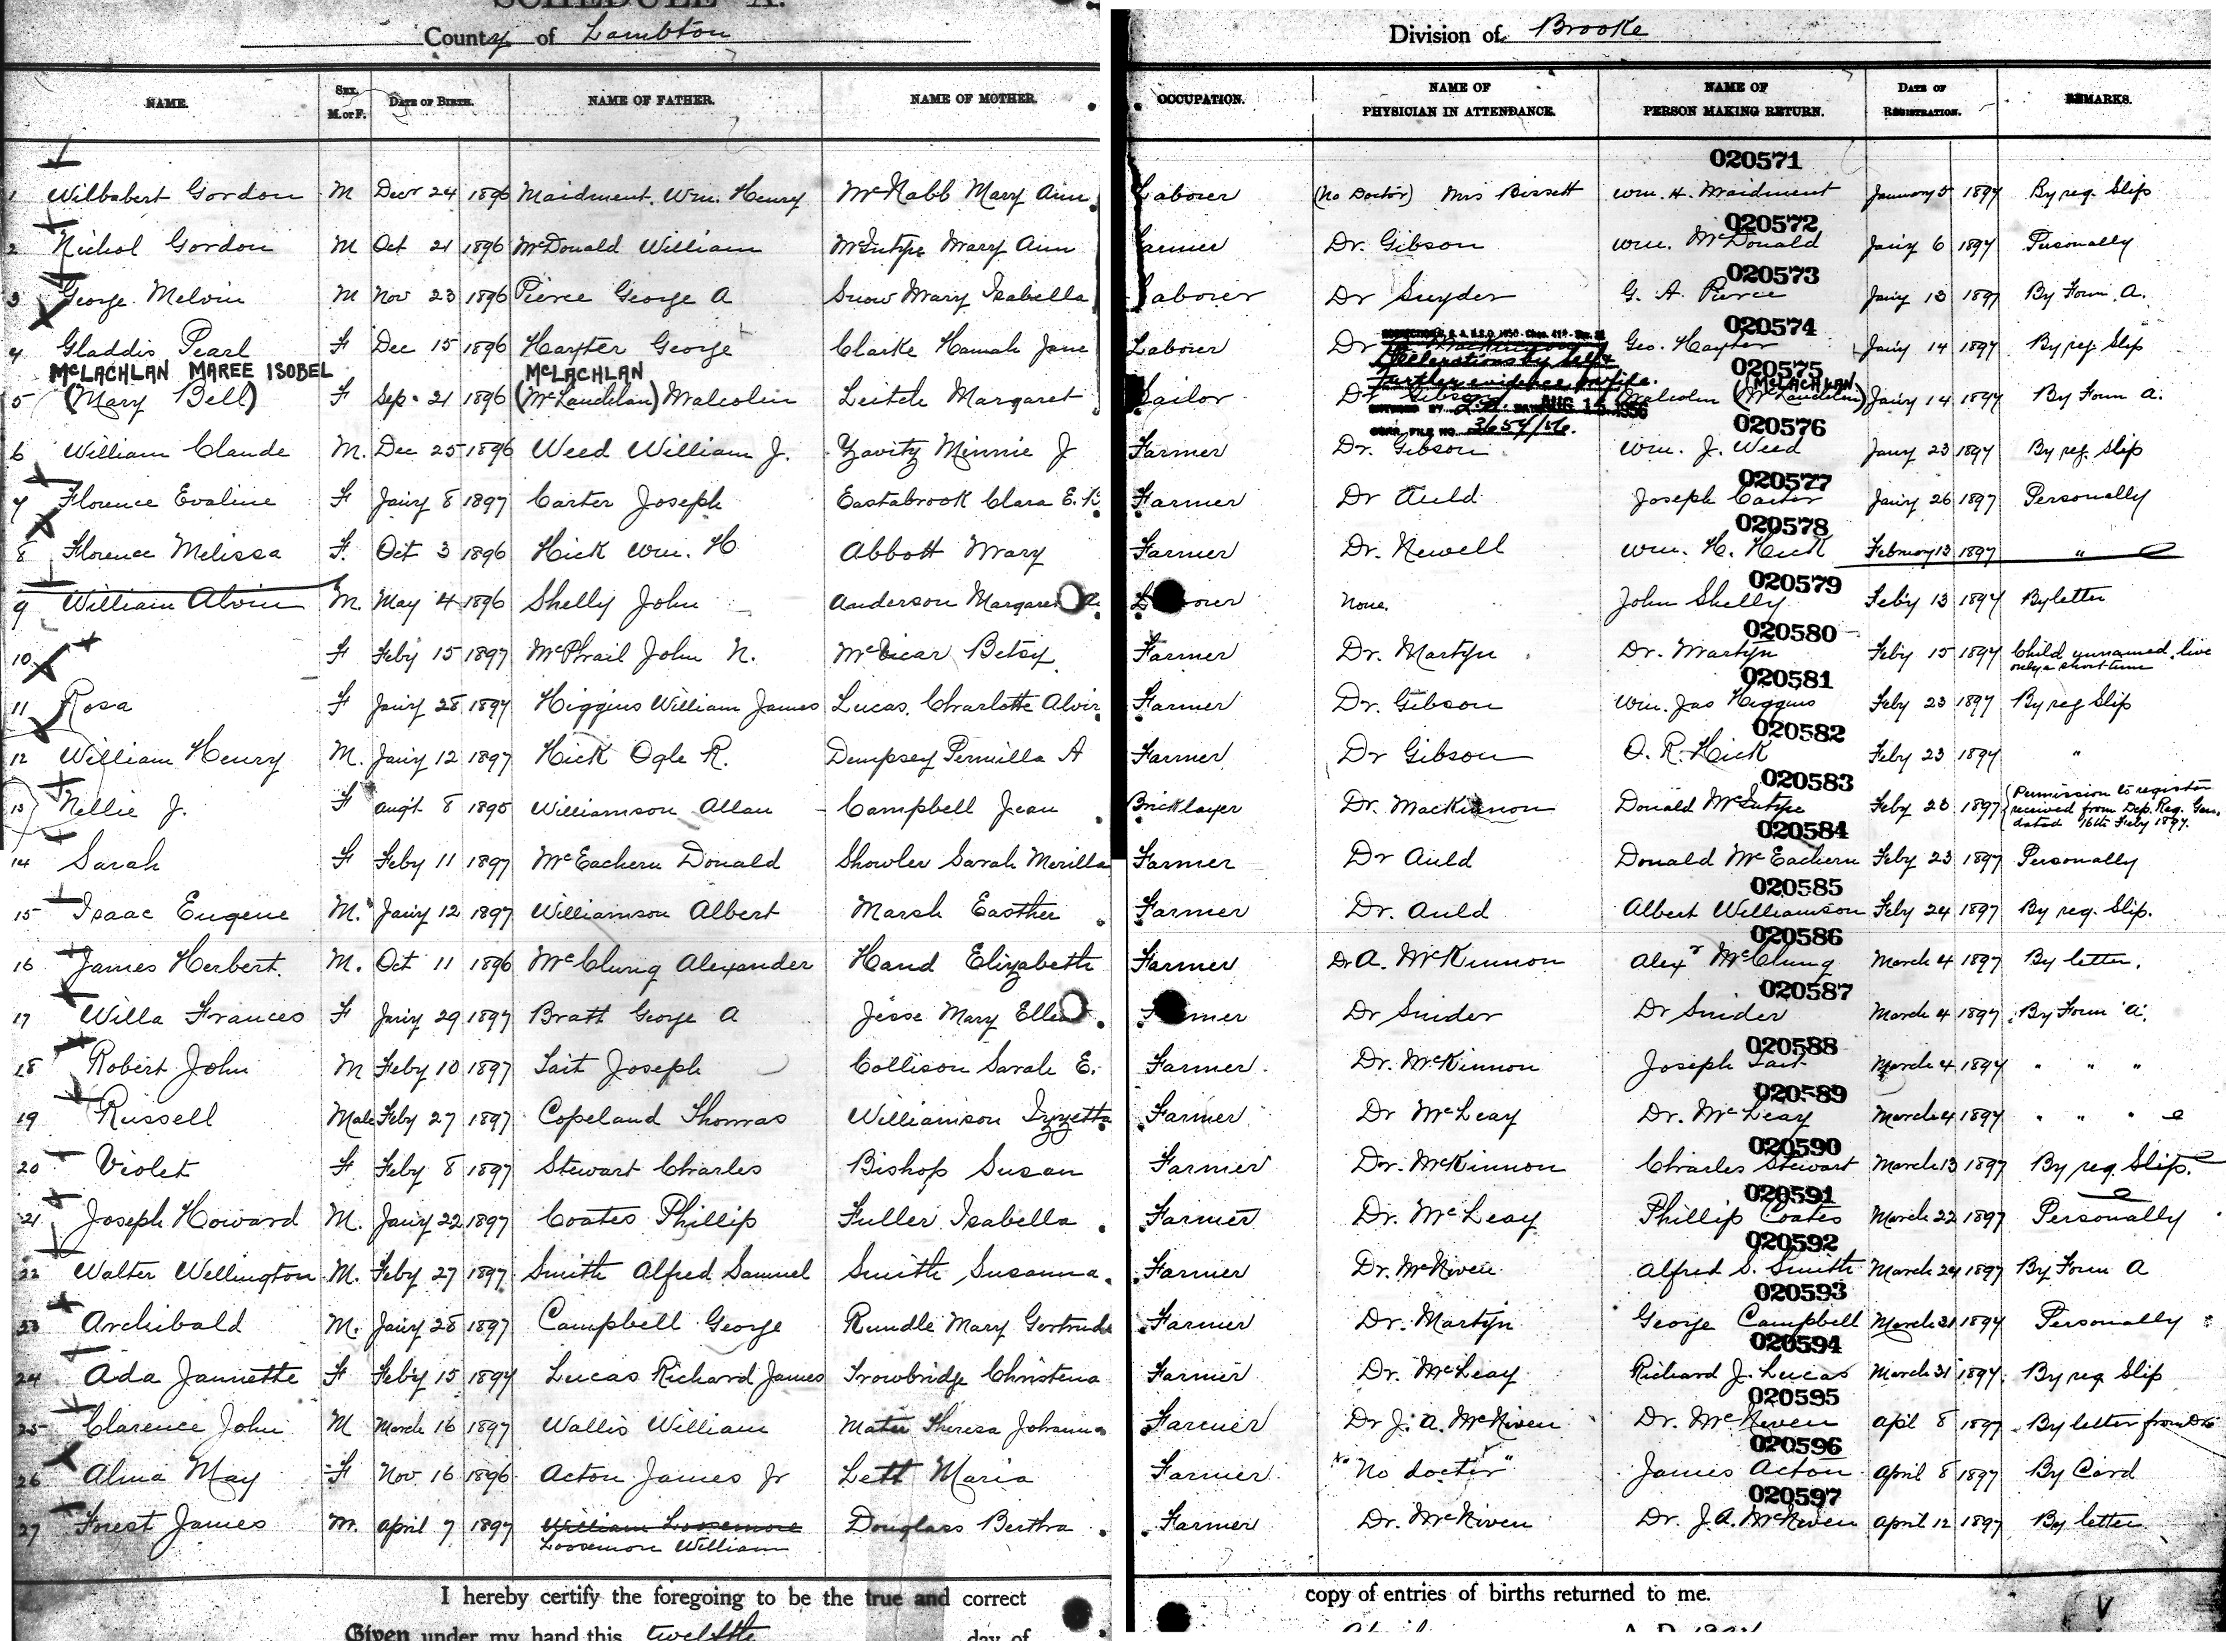 SCHEDULE A.
County of Lambton
Division of Brooke
NAME. SEX. M. or F. DATE OF BIRTH. NAME OF FATHER. NAME OF MOTHER. OCCUPATION. NAME OF PHYSICIAN IN ATTENDANCE. NAME OF PERSON MAKING RETURN. DATE OF REGISTRATION. REMARKS.
020571
1 Gordon M Decr 24 1896 Maidment. Wm. Henry McNabb Mary Ann Laborer (No Doctor) Mrs Bissett Wm. H. Maidment January 5 1897 By reg. Slip
020572
2 Nichol Gordon M Oct 21 1896 McDonald William McIntyre Mary Ann Farmer Dr. Gibson Wm. McDonald Jany 6 1897 Personally
020573
3 George Melvin M Nov 23 1896 Pierce George A Snow Mary Isabella Laborer Dr Snyder G. A. Pierce Jany 13 1897 By Form A.
020574
4 Gladdis Pearl F Dec 15 1896 Hayter George Clarke Hannah Jane Laborer Dr Geo. Hayter Jany 14 1897 By reg Slip
020575
McLACHLAN MAREE ISOBEL McLACHLAN McLACHLAN
5 (Mary Bell) F Sep. 21 1896 (McLauchlan) Malcolm Leitch Margaret Sailor Dr Gibson Malcolm (McLauchlan) Jany 14 1897 By Form A.
AUG 15 1956
CORR. FILE NO. 3654/56.
020576
6 William Claude M. Dec 25 1896 Weed William J. Zavitz Minnie J Farmer Dr. Gibson Wm. J. Weed Jany 23 1897 By reg. Slip
020577
7 Florence Evaline F Jany 8 1897 Carter Joseph Eastabrook Clara E. Farmer Dr Auld Joseph Carter Jany 26 1897 Personally
020578
8 Florence Melissa F. Oct 3 1896 Hick Wm. H Abbott Mary Farmer Dr. Newell Wm. H. Hick February 13 1897 "
020579
9 William Alvin M. May 4 1896 Shelly John Anderson Margaret Laborer None. John Shelly Feby 13 1897 By letter
020580
10 F Feby 15 1897 McPhail John N. McVicar Betsy Farmer Dr. Martyn Dr. Martyn Feby 15 1897 Child unnamed. live
only a short time
020581
11 Rosa F Jany 28 1897 Higgins William James Lucas. Charlotte Farmer Dr. Gibson Wm. Jas Higgins Feby 23 1897 By reg Slip
020582
12 William Henry M. Jany 12 1897 Hick Ogle R. Dempsey Permilla A Farmer Dr Gibson O. R. Hick Feby 23 1897 "
020583
13 Nellie J. F Augt 8 1895 Williamson Allan Campbell Jean Bricklayer Dr. MacKinnon Donald McIntyre Feby 23 1897 (Permission to register
received from Dep. Reg. Gen.
dated 16th Feby 1897.
020584
14 Sarah F Feby 11 1897 McEachern Donald Showler Sarah Merilla Farmer Dr Auld Donald McEachern Feby 23 1897 Personally
020585
15 Isaac Eugene M. Jany 12 1897 Williamson Albert Marsh Easther Farmer Dr. Auld Albert Williamson Feby 24 1897 By reg. Slip.
020586
16 James Herbert. M. Oct 11 1896 McClung Alexander Hand Elizabeth Farmer Dr A. McKinnon Alexr McClung March 4 1897 By letter.
020587
17 Willa Frances F Jany 29 1897 Bratt George A Jesse Mary Ellen Farmer Dr Snider Dr Snider March 4 1897 By Form 'A'.
020588
18 Robert John M Feby 10 1897 Tait Joseph Collison Sarah E. Farmer. Dr. McKinnon Joseph Tait March 4 1897 " " "
020589
19 Russell Male Feby 27 1897 Copeland Thomas Williamson Izzetta Farmer Dr McLeay Dr. McLeay March 4 1897 " " "
020590
20 Violet F Feby 8 1897 Stewart Charles Bishop Susan Farmer Dr. McKinnon Charles Stewart March 13 1897 By reg. Slip.
020591
21 Joseph Howard M. Jany 22 1897 Coates Phillip Fuller Isabella Farmer Dr. McLeay Phillip Coates March 22 1897 Personally
020592
22 Walter Wellington M. Feby 27 1897 Smith Alfred Samuel Smith Susanna. Farmer Dr. McNiven Alfred S. Smith March 24 1897 By Form A
020593
23 Archibald M. Jany 28 1897 Campbell George Rundle Mary Gertrude Farmer Dr. Martyn George Campbell March 31 1897 Personally
020594
24 Ada Jannette F Feby 15 1897 Lucas Richard James Trowbridge Christena Farmer Dr. McLeay Richard J. Lucas March 31 1897. By reg Slip
020595
25 Clarence John M March 16 1897 Wallis William Theresa Johanna Farmer Dr J. A. McNiven Dr. McNiven Apl 8 1897 By letter from Dr
020596
26 Alma May F Nov 16 1896 Acton James Jr Lett Maria Farmer "No doctor" James Acton April 8 1897 By Card
020597
27 Forest James M. April 7 1897 William Loosemore Douglass Bertha Farmer Dr. McNiven Dr. J. A. McNiven April 12 1897 By letter
Loosemore William
I hereby certify the foregoing to be the true and correct copy of entries of births returned to me.
Given under my hand this twelfth day of April A. D. 1897